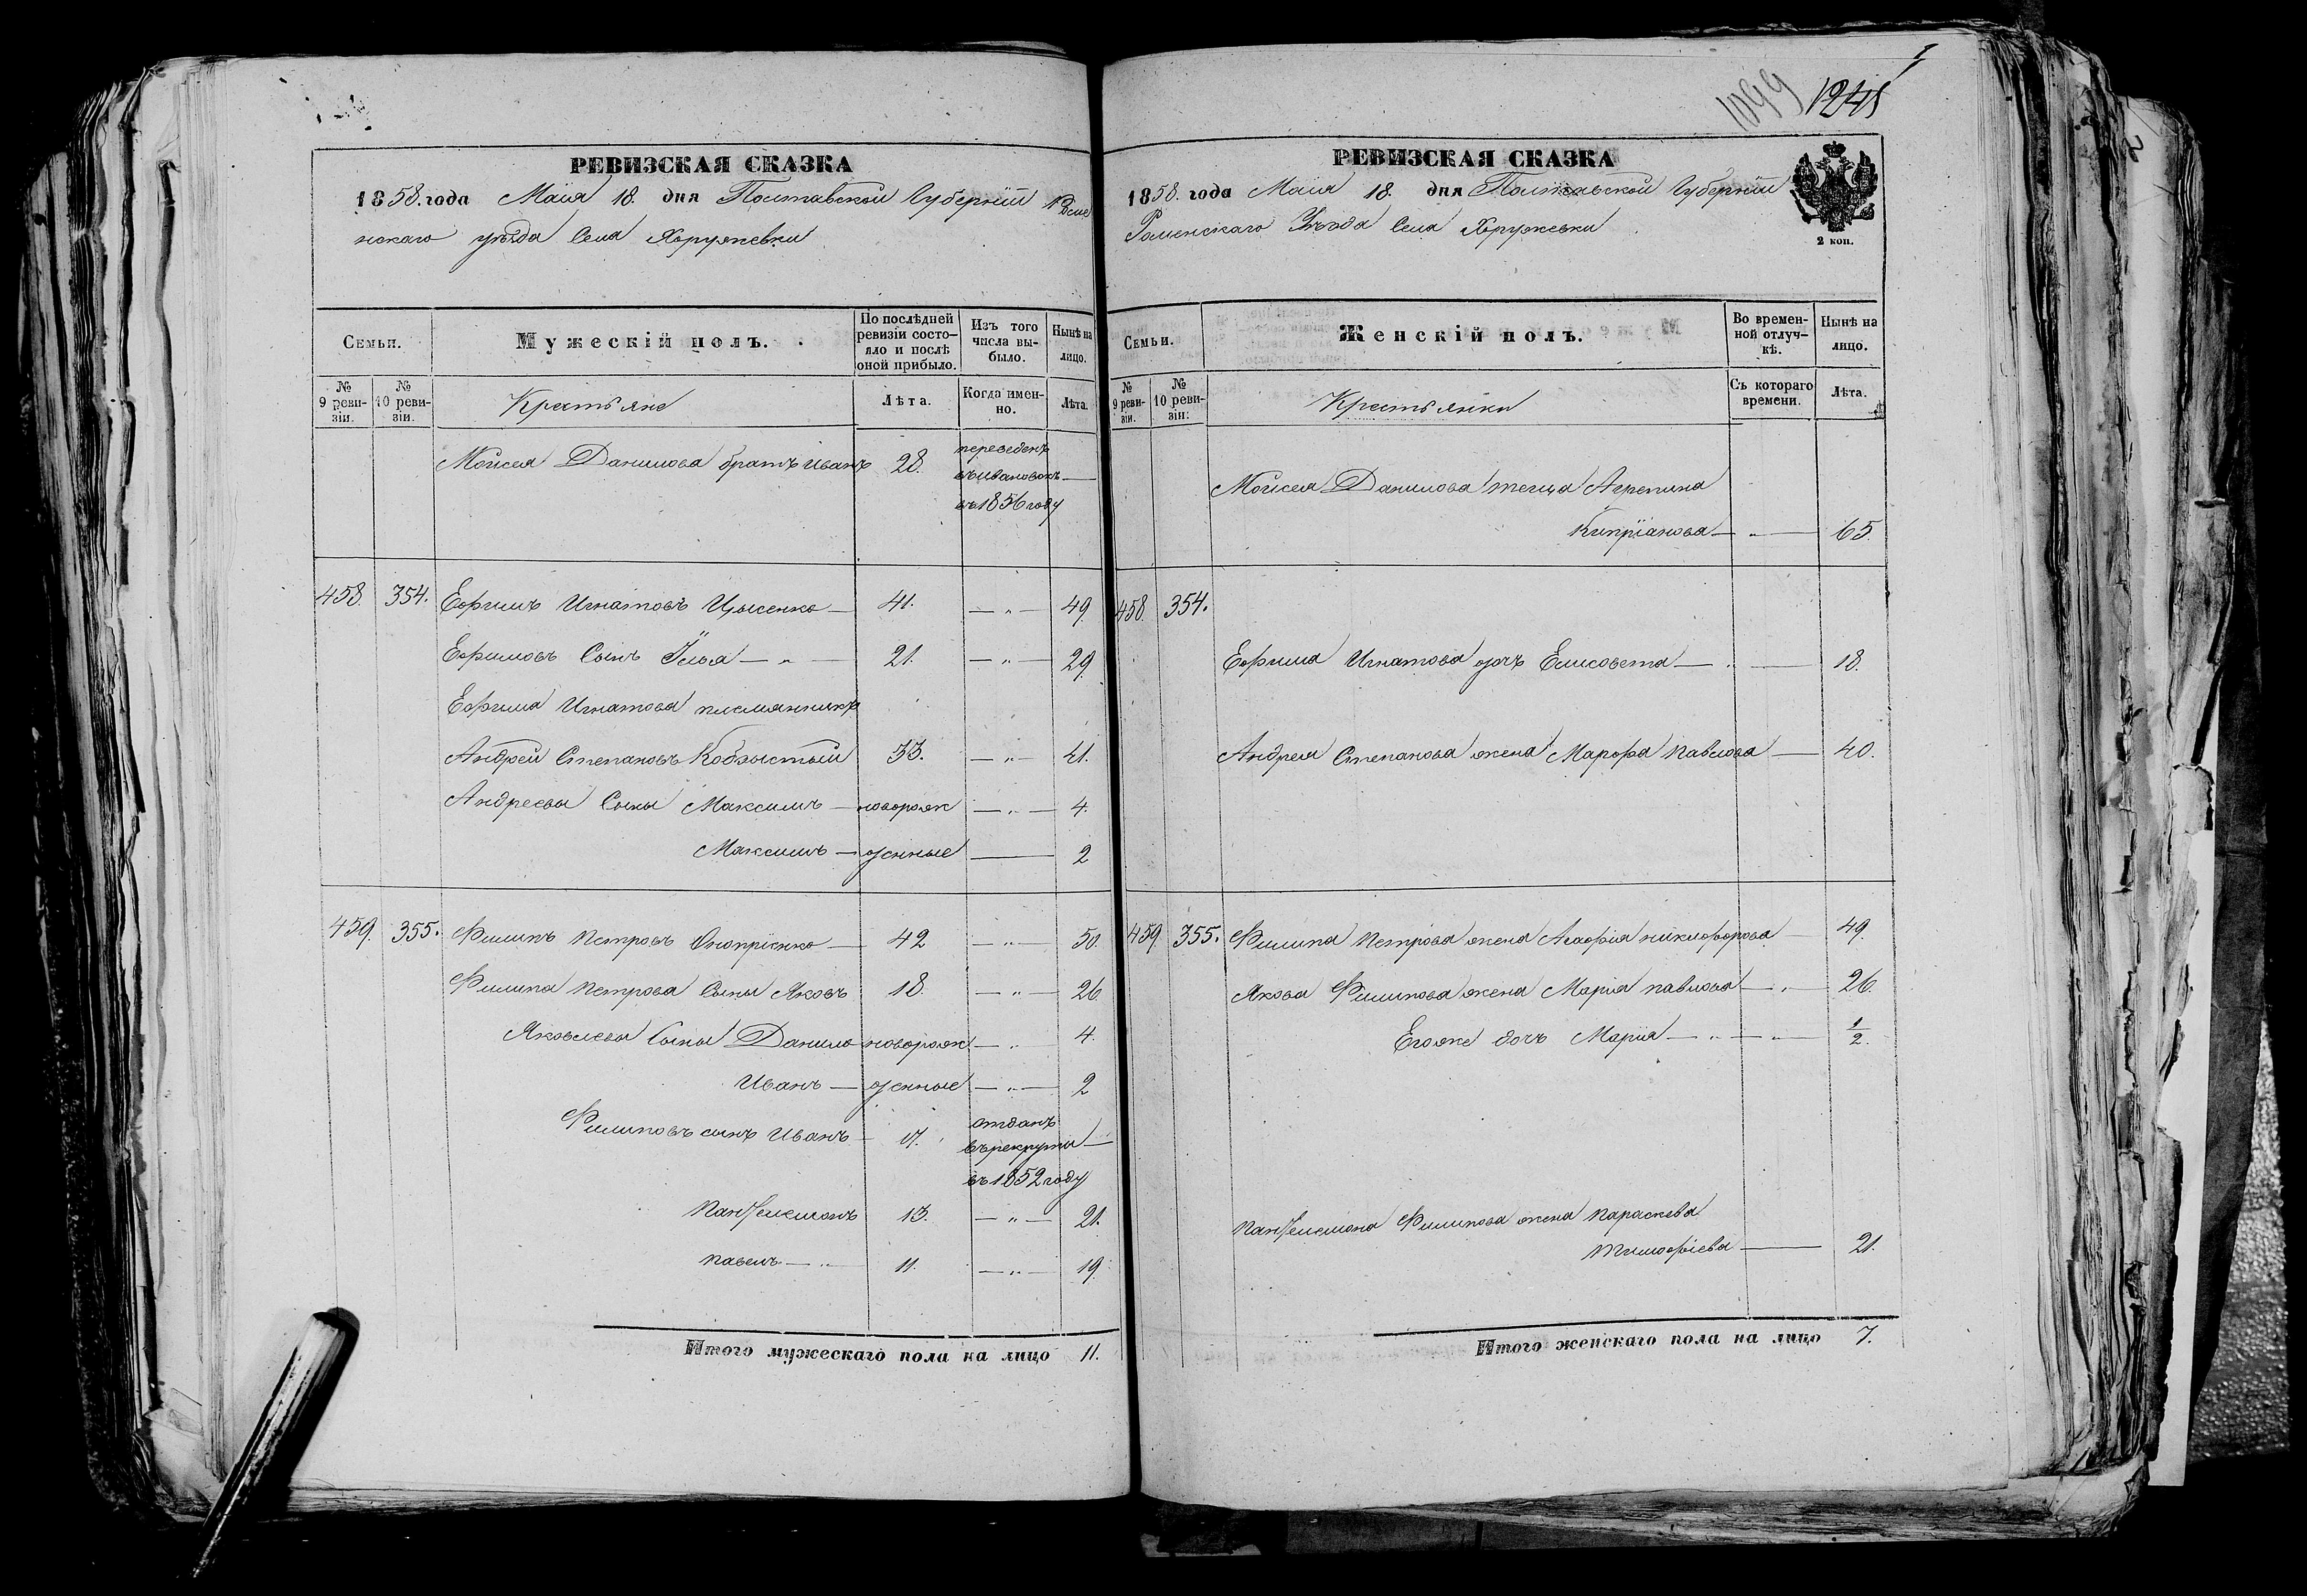 РЕВИЗСКАЯ СКАЗКА
1858. года Маія 18. дня Полтавской Губерніи Роме
нскаго уѣзда Села Хоружевки
Семьи.
Мужескій полъ.
По послѣдней ревизіи состо-
яло и послѣ оной прибыло.
Изъ того числа вы-
было.
Нынѣ на лицо.
№ 9 реви-
зіи.
№ 10 реви-
зіи.
Крестьяне
Лѣта.
Когда имен-
но.
Лѣта.
Моисея Данилова братъ Иванъ 28. переведенъ
въ 1856 году
458. 354. Ефимъ Игнатовъ 41. — " — 49.
Ефимовъ Сынъ Илья — " — 21. — " — 29.
Ефима Игнатова племянникъ
Андрей Степановъ 33. — " — 41.
Андреевы Сыны Максимъ — новорож — " — 4.
Максимъ — денные — 2
459. 355. Филипъ Петровъ Онопріенко — 42 — " — 50.
Филипа Петрова Сыны Яковъ 18. — " — 26.
Яковлевы Сыны Данило новорож — " — 4.
Иванъ — денные — " — 2
Филиповъ сынъ Иванъ — 17. отданъ
въ рекруты —
въ 1852 году
Панѳелимонъ 13. — " — 21.
Павелъ — " — 11. — " — 19.
Итого мужескаго пола на лицо 11.
1099 1245
РЕВИЗСКАЯ СКАЗКА
1858. года Маія 18. дня Полтавской Губерніи
Роменскаго Уѣзда Села Хоружевки
2 коп.
Семьи.
Женскій полъ.
Во времен-
ной отлуч-
кѣ.
Нынѣ на лицо.
№ 9 реви-
зіи.
№ 10 реви-
зіи.
Крестьянки
Съ котораго времени.
Лѣта.
Моисея Данилова теща Агрепина
Кипріанова — " — 65.
458. 354.
Ефима Игнатова дочь Елисовета — " — 18.
Андрея Степанова жена Марфа Павлова — 40.
459. 355. Филипа Петрова жена Агафія Никифорова — 49.
Якова Филипова жена Марія Павлова — " — 26.
Егоже дочь Марія — " — " — 1/2.
Панѳелимона Филипова жена Параскева
Тимофіева — 21.
Итого женскаго пола на лицо 7.